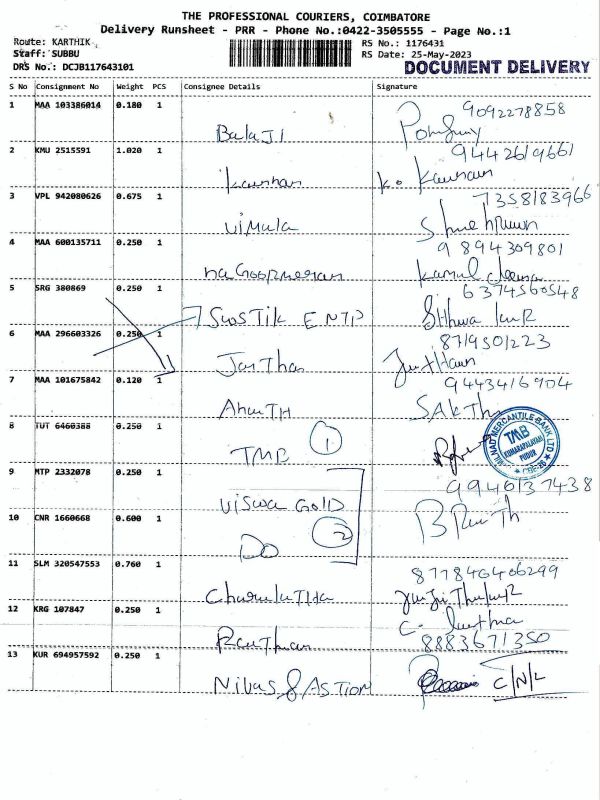 THE PROFESSIONAL COURIERS, COIMBATORE
Delivery Runsheet - PRR - Phone No.:0422-3505555 - Page No.:1
Route: KARTHIK
Staff: SUBBU
DRS No.: DCJB117643101
RS No.: 1176431
RS Date: 25-May-2023
DOCUMENT DELIVERY
S No Consignment No Weight PCS Consignee Details Signature
1 MAA 103386014 0.180 1
9092278858
Balaji
2 KMU 2515591 1.020 1
9442619661
Kannan K.
3 VPL 942080626 0.675 1
7358183966
Vimala
4 MAA 600135711 0.250 1
9894309801
5 SRG 380869 0.250 1
6374560548
Swostik ENTP
6 MAA 296603326 0.250 1
8719501223
7 MAA 101675842 0.120 1
9443416904
SAKThi
8 TUT 6460388 0.250 1
TMB 1
TMB
KUMARAPALAYAM
PUDUR
9 MTP 2332078 0.250 1
9946137438
Viswa Gold
10 CNR 1660668 0.600 1
Do 2
11 SLM 320547553 0.760 1
8778406406299
12 KRG 107847 0.250 1
8883671350
13 KUR 694957592 0.250 1
C/N/L